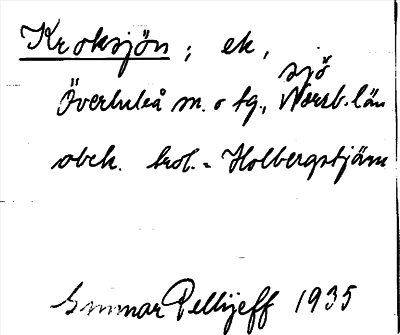 Kroksjön; ek,
sjö
Överluleå sn. o tg., Norrb. län
obek. trol. = Holbergstjärn
Gunnar Pellijeff 1935